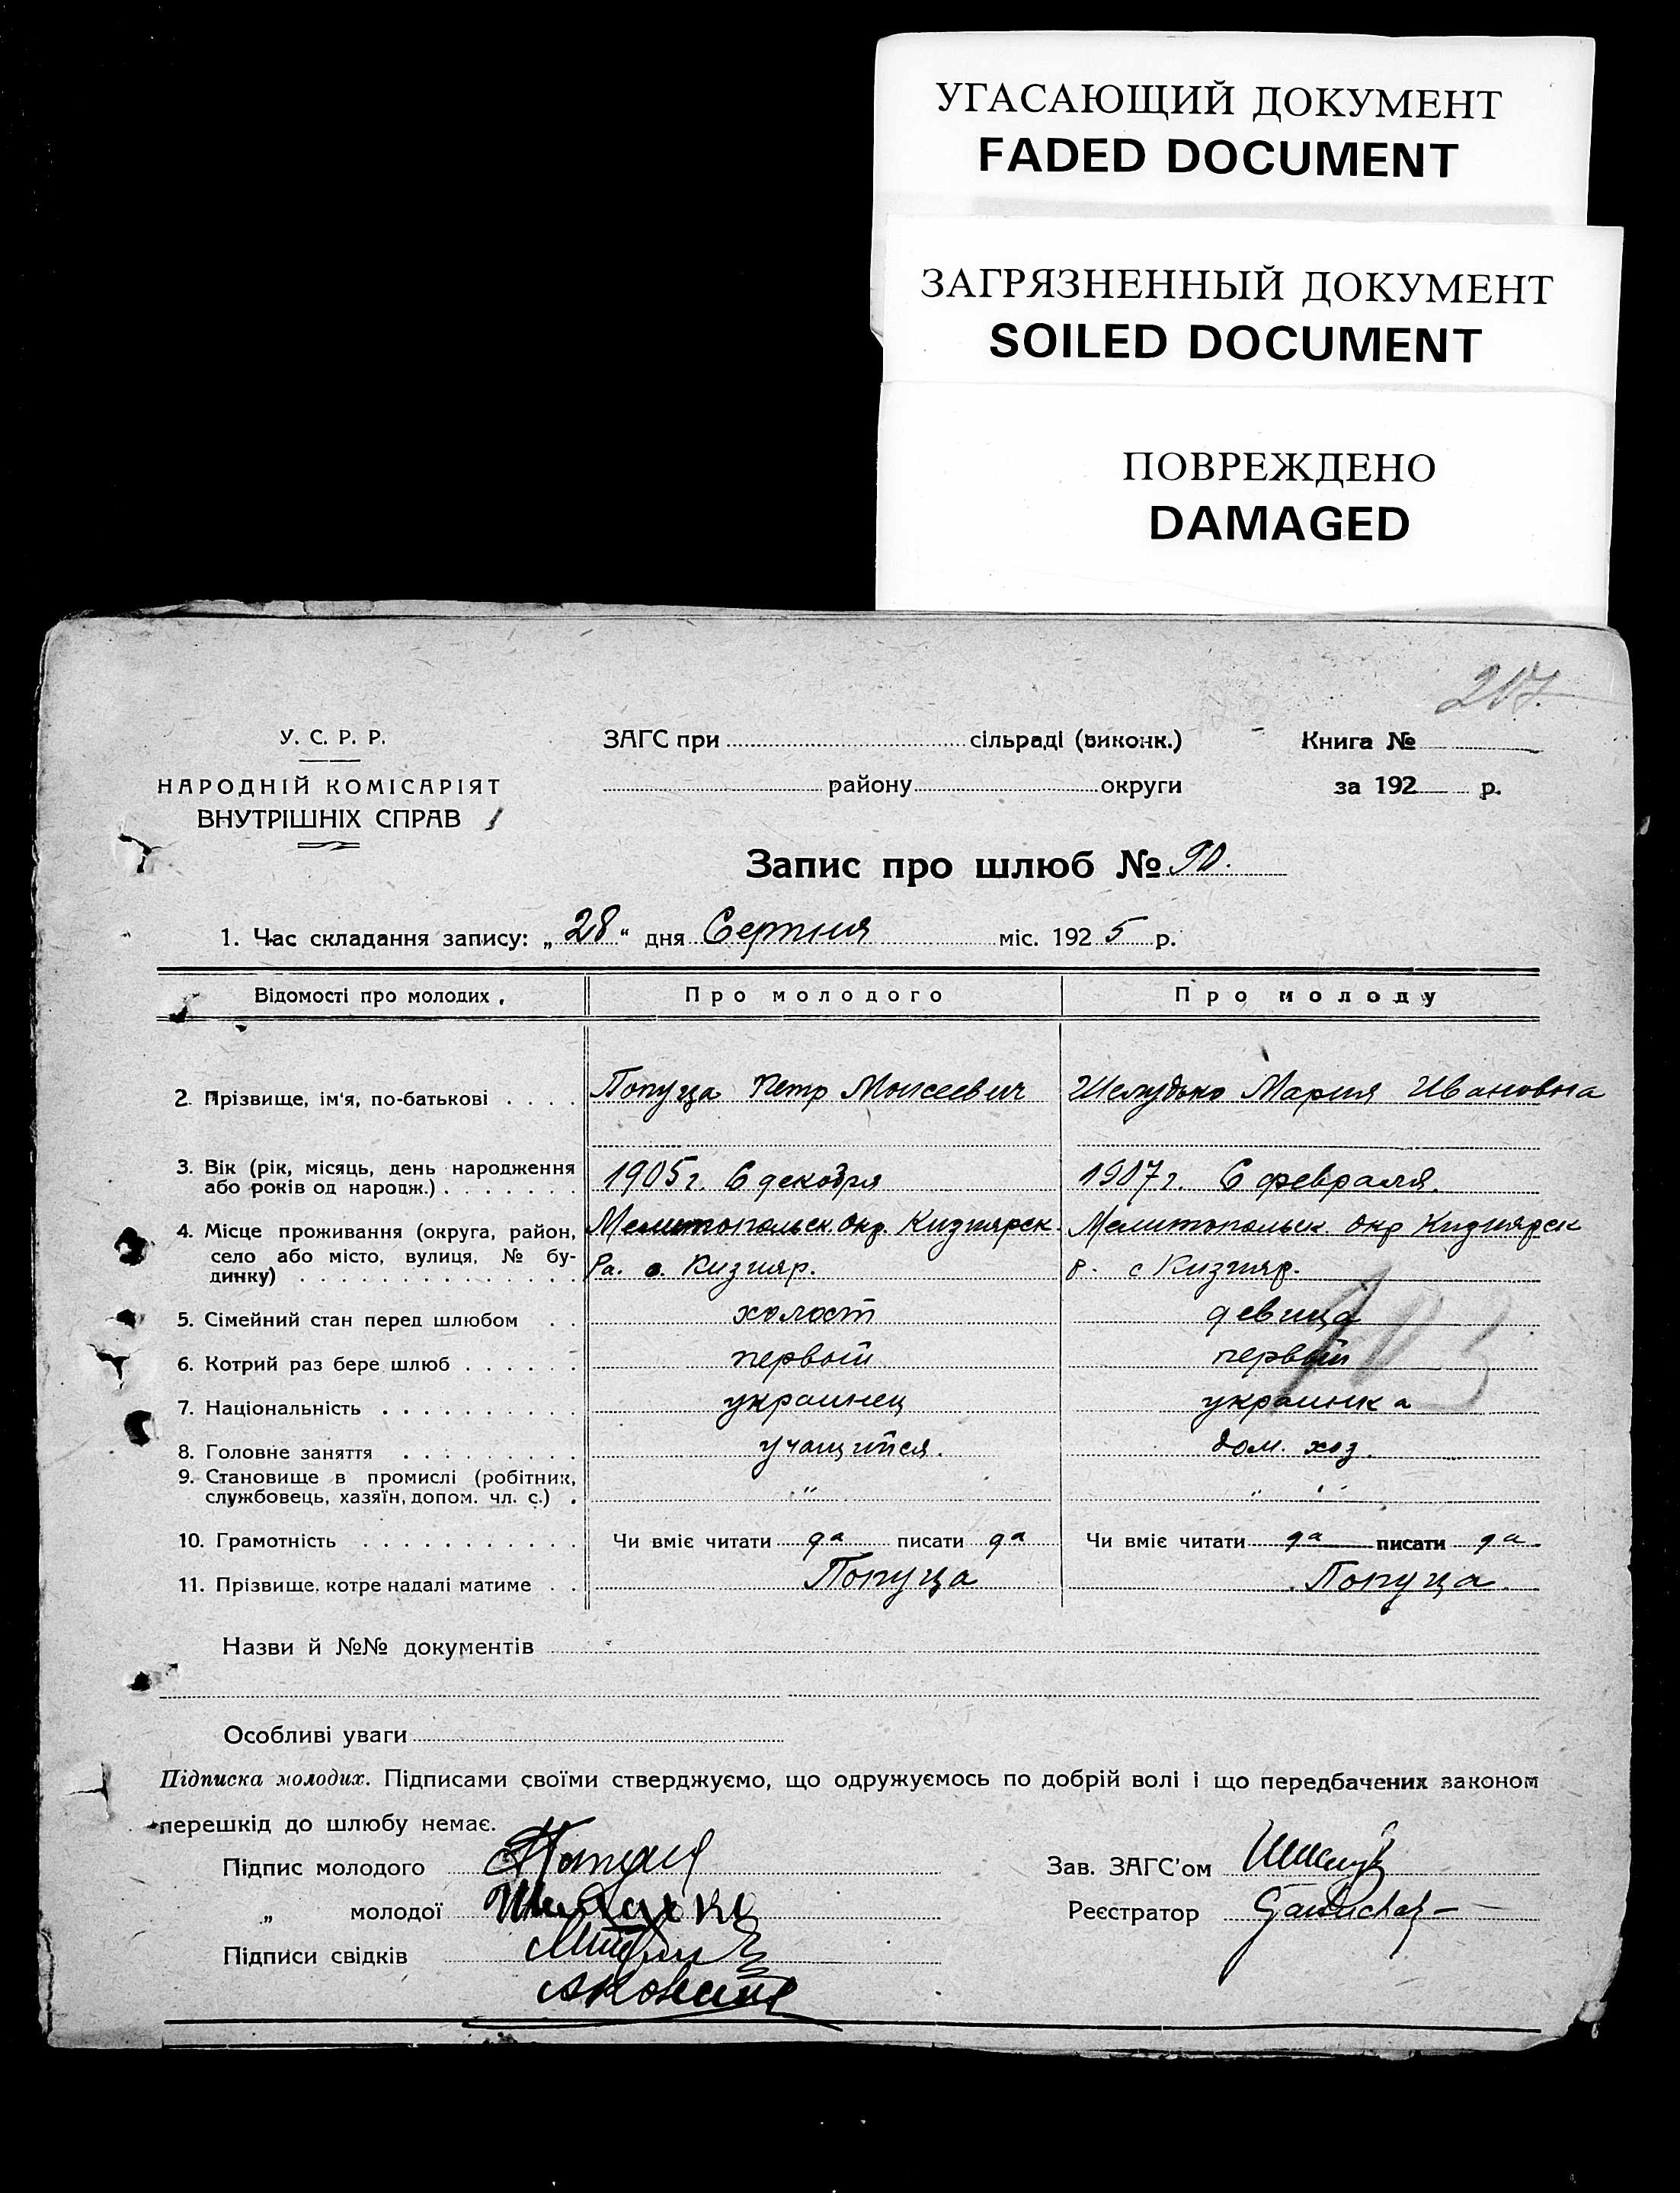 УГАСАЮЩИЙ ДОКУМЕНТ
FADED DOCUMENT
ЗАГРЯЗНЕННЫЙ ДОКУМЕНТ
SOILED DOCUMENT
ПОВРЕЖДЕНО
DAMAGED
207.
У. С. Р. Р.
НАРОДНІЙ КОМІСАРІЯТ
ВНУТРІШНІХ СПРАВ
ЗАГС при сільраді (виконк.)
району округи
Книга №
за 192 р.
Запис про шлюб № 90.
1. Час складання запису: „28“ дня Серпня міс. 1925 р.
Відомості про молодих Про молодого Про молоду
2. Прізвище, ім'я, по-батькові . . . . Попуца Петр Моисеевич Шелудько Мария Ивановна
3. Вік (рік, місяць, день народження
або років од народж.) . . . . . . . 1905 г. 6 декабря 1907 г. 6 февраля.
4. Місце проживання (округа, район, Мелитопольск. Окр. Кизиярск. Мелитопольск. Окр Кизиярск
село або місто, вулиця, № бу-
динку) . . . . . . . . . . . . . . Ра. с. Кизияр. р. с Кизияр.
5. Сімейний стан перед шлюбом . . холост девица
6. Котрий раз бере шлюб . . . . . . первый первый
7. Національність . . . . . . . . . . украинец украинка
8. Головне заняття . . . . . . . . . учащийся. дом. хоз.
9. Становище в промислі (робітник,
службовець, хазяїн, допом. чл. с.) . " "
10. Грамотність . . . . . . . . . . . Чи вміє читати да писати да Чи вміє читати да писати да
11. Прізвище, котре надалі матиме . . Попуца Попуца.
Назви й №№ документів
Особливі уваги
Підписка молодих. Підписами своїми стверджуємо, що одружуємось по добрій волі і що передбачених законом
перешкід до шлюбу немає.
Підпис молодого Попуца Зав. ЗАГС'ом
„ молодої Шелудько Реєстратор
Підписи свідків